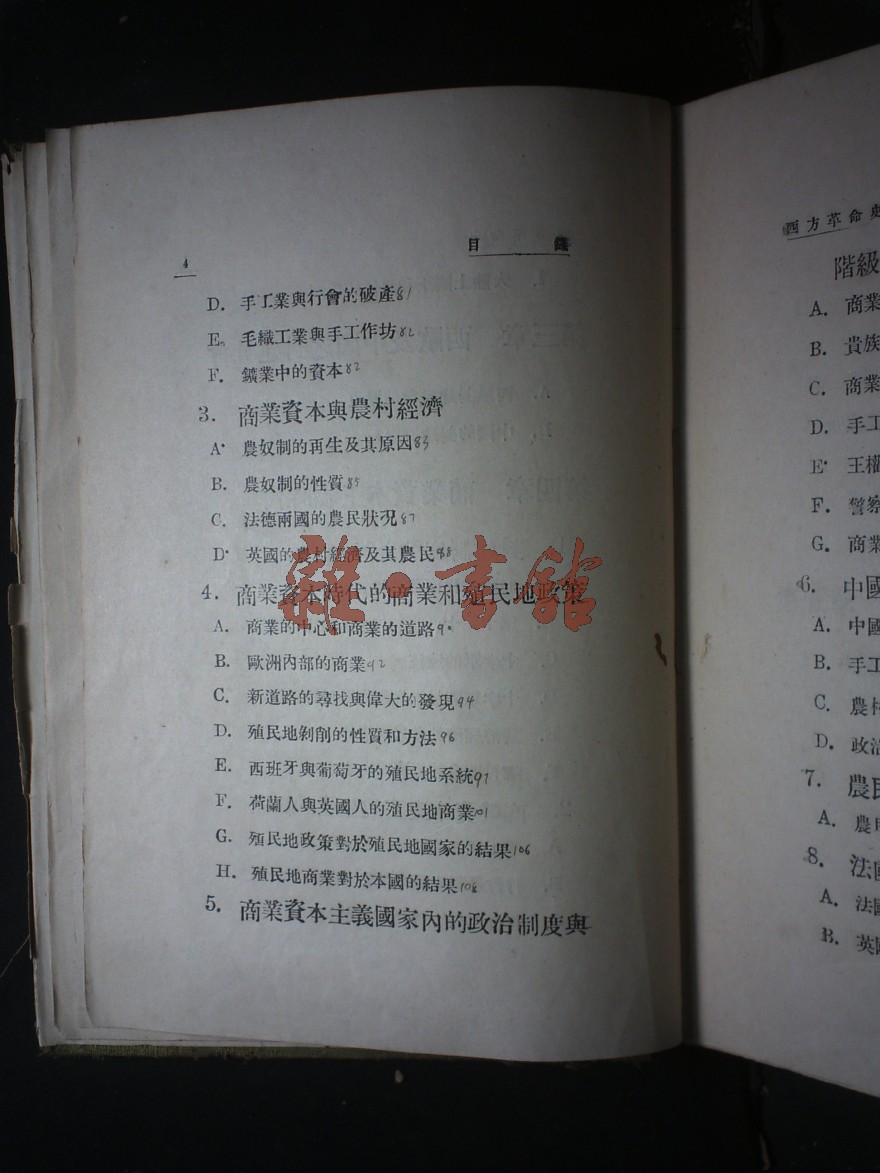 4
目 錄
D. 手工業與行會的破產81
E. 毛織工業與手工作坊82
F. 鑛業中的資本82
3. 商業資本與農村經濟
A. 農奴制的再生及其原因83
B. 農奴制的性質85
C. 法德兩國的農民狀況87
D. 英國的農村經濟及其農民88
4. 商業資本時代的商業和殖民地政策
A. 商業的中心和商業的道路90
B. 歐洲內部的商業92
C. 新道路的尋找與偉大的發現94
D. 殖民地剝削的性質和方法96
E. 西班牙與葡萄牙的殖民地系統97
F. 荷蘭人與英國人的殖民地商業101
G. 殖民地政策對於殖民地國家的結果106
H. 殖民地商業對於本國的結果108
5. 商業資本主義國家內的政治制度與
雜·書館
西方革命史
階級
A. 商業
B. 貴族
C. 商業
D. 手工
E. 王權
F. 警察
G. 商業
6. 中國
A. 中國
B. 手工
C. 農村
D. 政治
7. 農民
A. 農
8. 法國
A. 法國
B. 英國